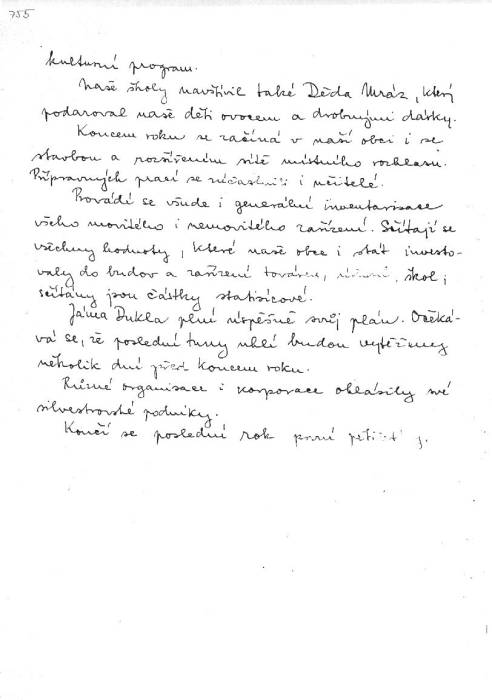 755
kulturní program.
Naše školy navštívil také Děda Mráz, který
podaroval naše děti ovocem a drobnými dárky.
Koncem roku se začíná v naší obci i se
stavbou a rozšířením sítě místního rozhlasu.
Přípravných prací se zúčastnili i učitelé.
Provádí se všude i generální inventarisace
všeho movitého i nemovitého zařízení. Sčítají se
všechny hodnoty, které naše obce i stát investo-
valy do budov a zařízení továren, škol,
sčítány jsou částky statisícové.
Jáma Dukla plní úspěšně svůj plán. Očeká-
vá se, že poslední tuny uhlí budou vytěženy
několik dní před koncem roku.
Různé organisace i korporace ohlásily své
silvestrovské podniky.
Končí se poslední rok první pětiletky.